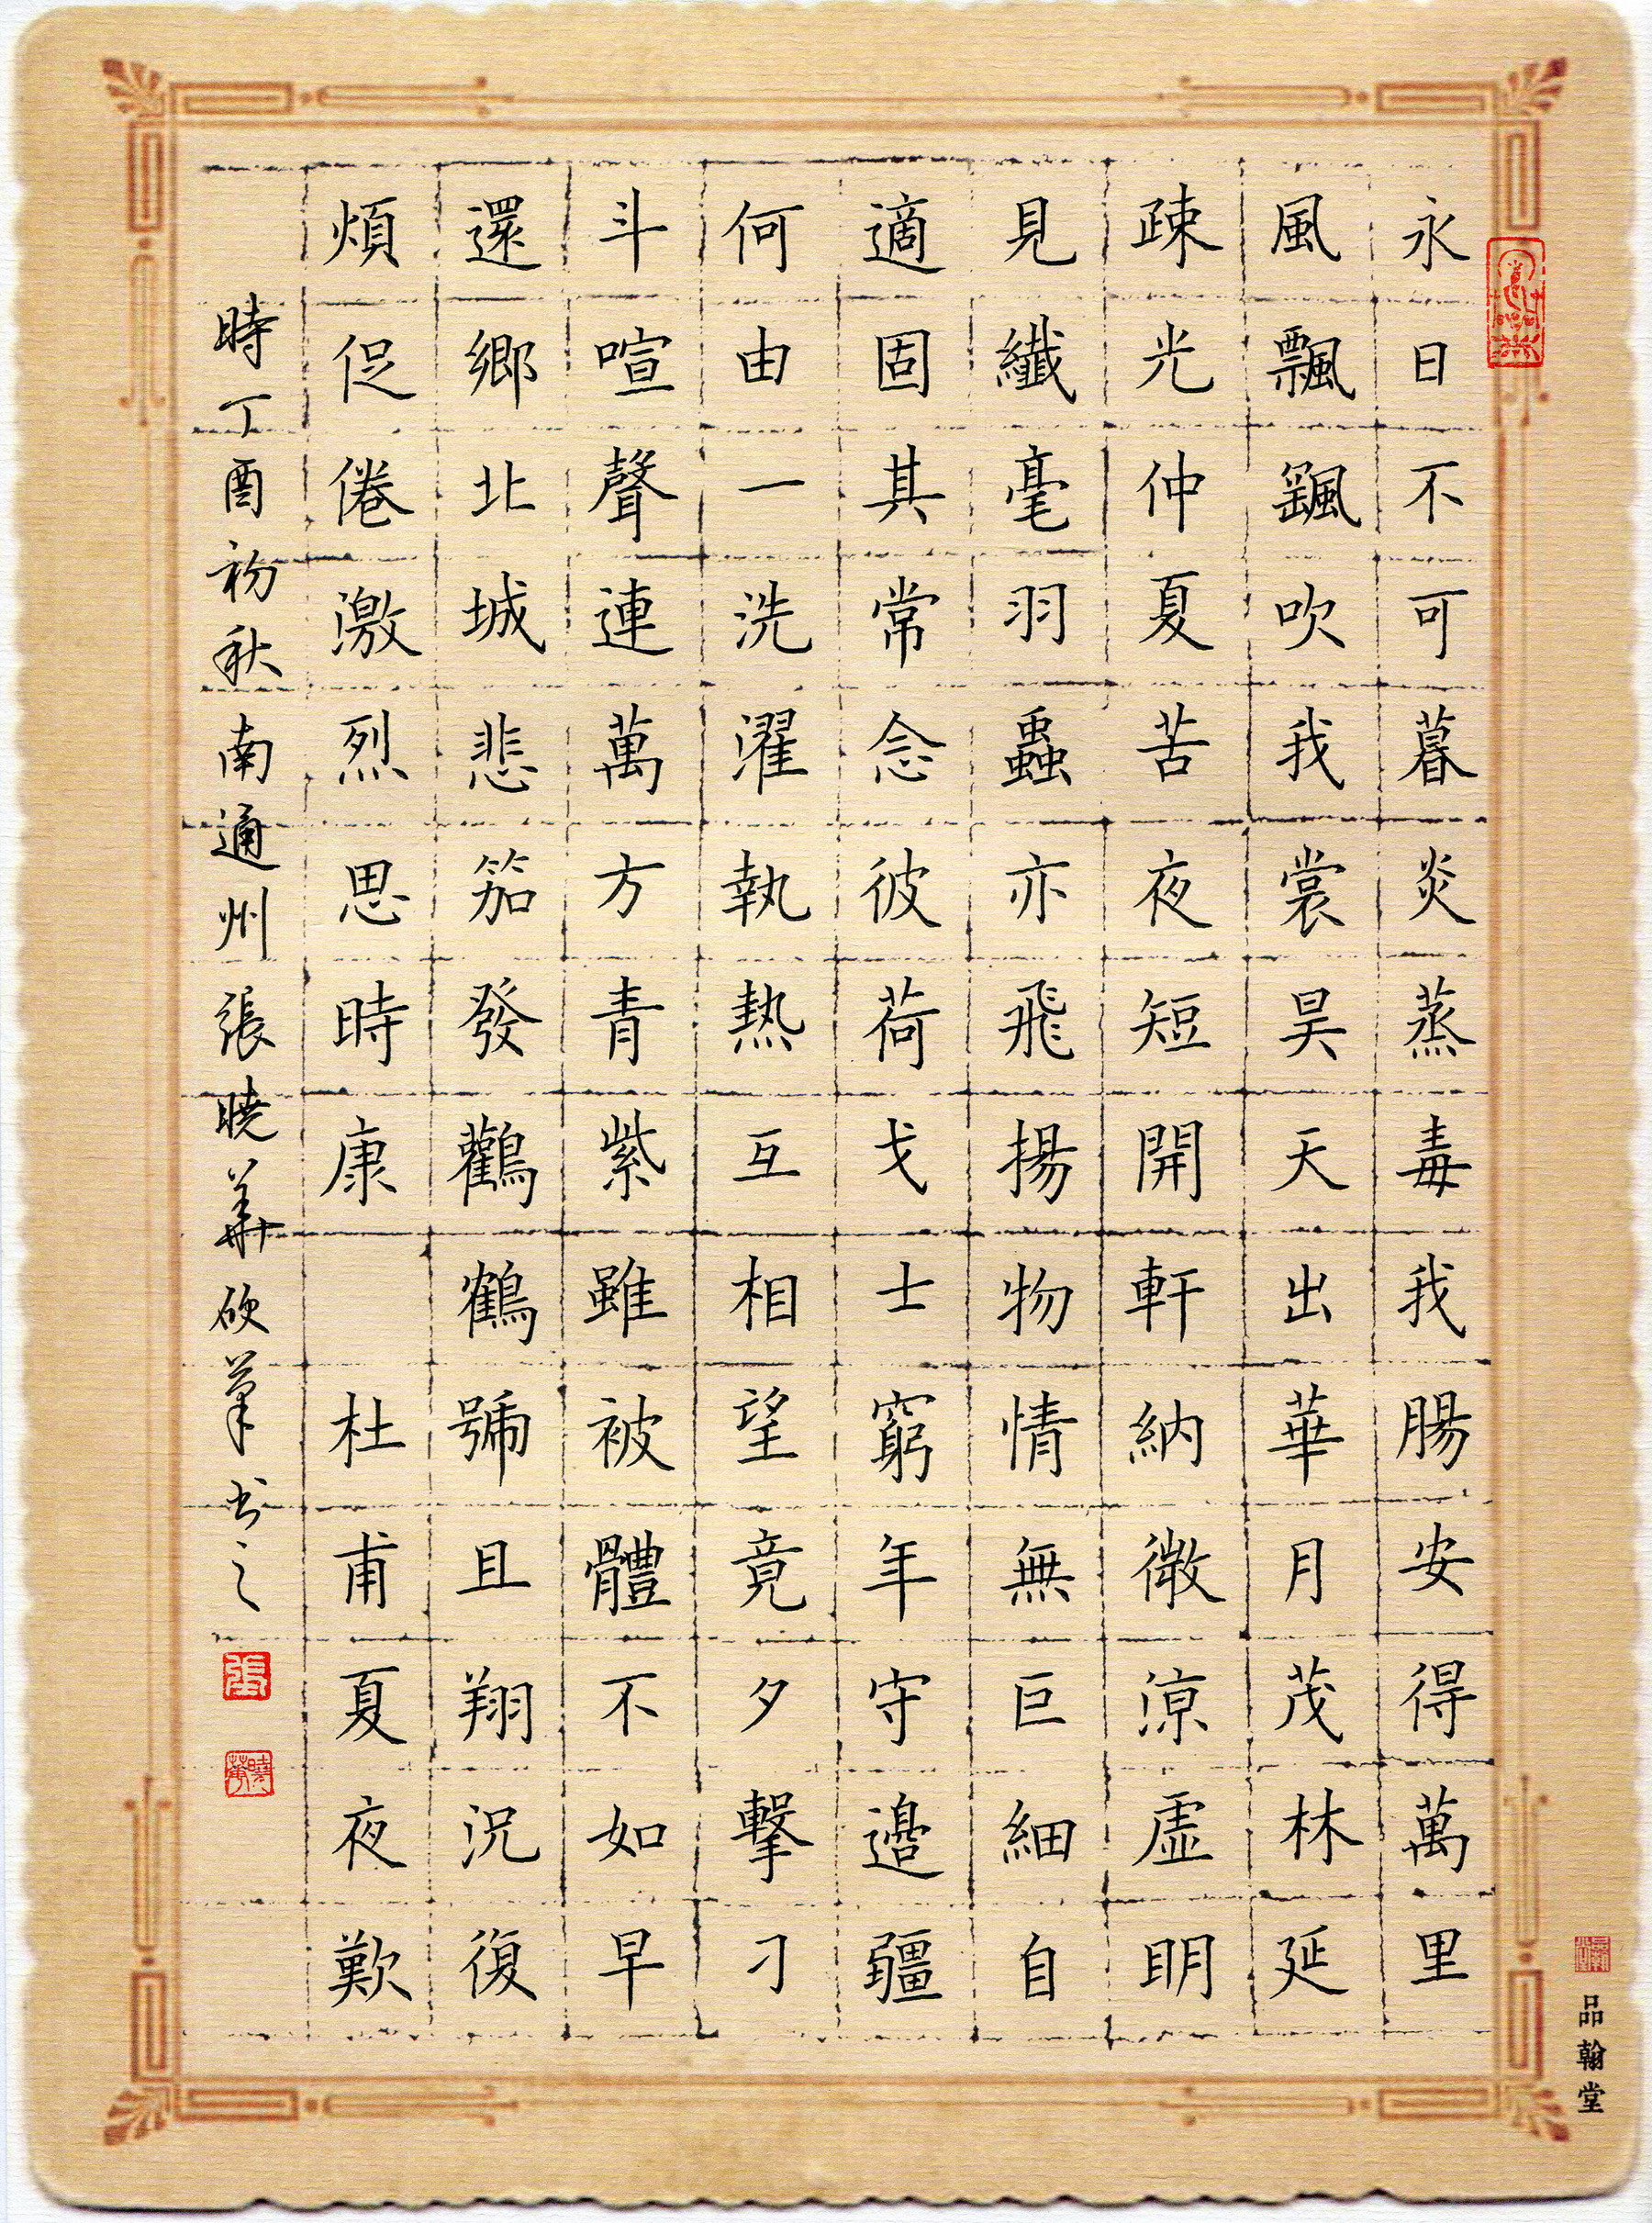 永日不可暮炎蒸毒我腸安得萬里
風飄飖吹我裳昊天出華月茂林延
疎光仲夏苦夜短開軒納微涼虛明
見纖毫羽蟲亦飛揚物情無巨細自
適固其常念彼荷戈士窮年守邊疆
何由一洗濯執熱互相望竟夕擊刁
斗喧聲連萬方青紫雖被體不如早
還鄉北城悲笳發鸛鶴號且翔況復
煩促倦激烈思時康 杜甫夏夜歎
時丁酉初秋南通州張曉華硬筆書之
張
曉華
品翰堂